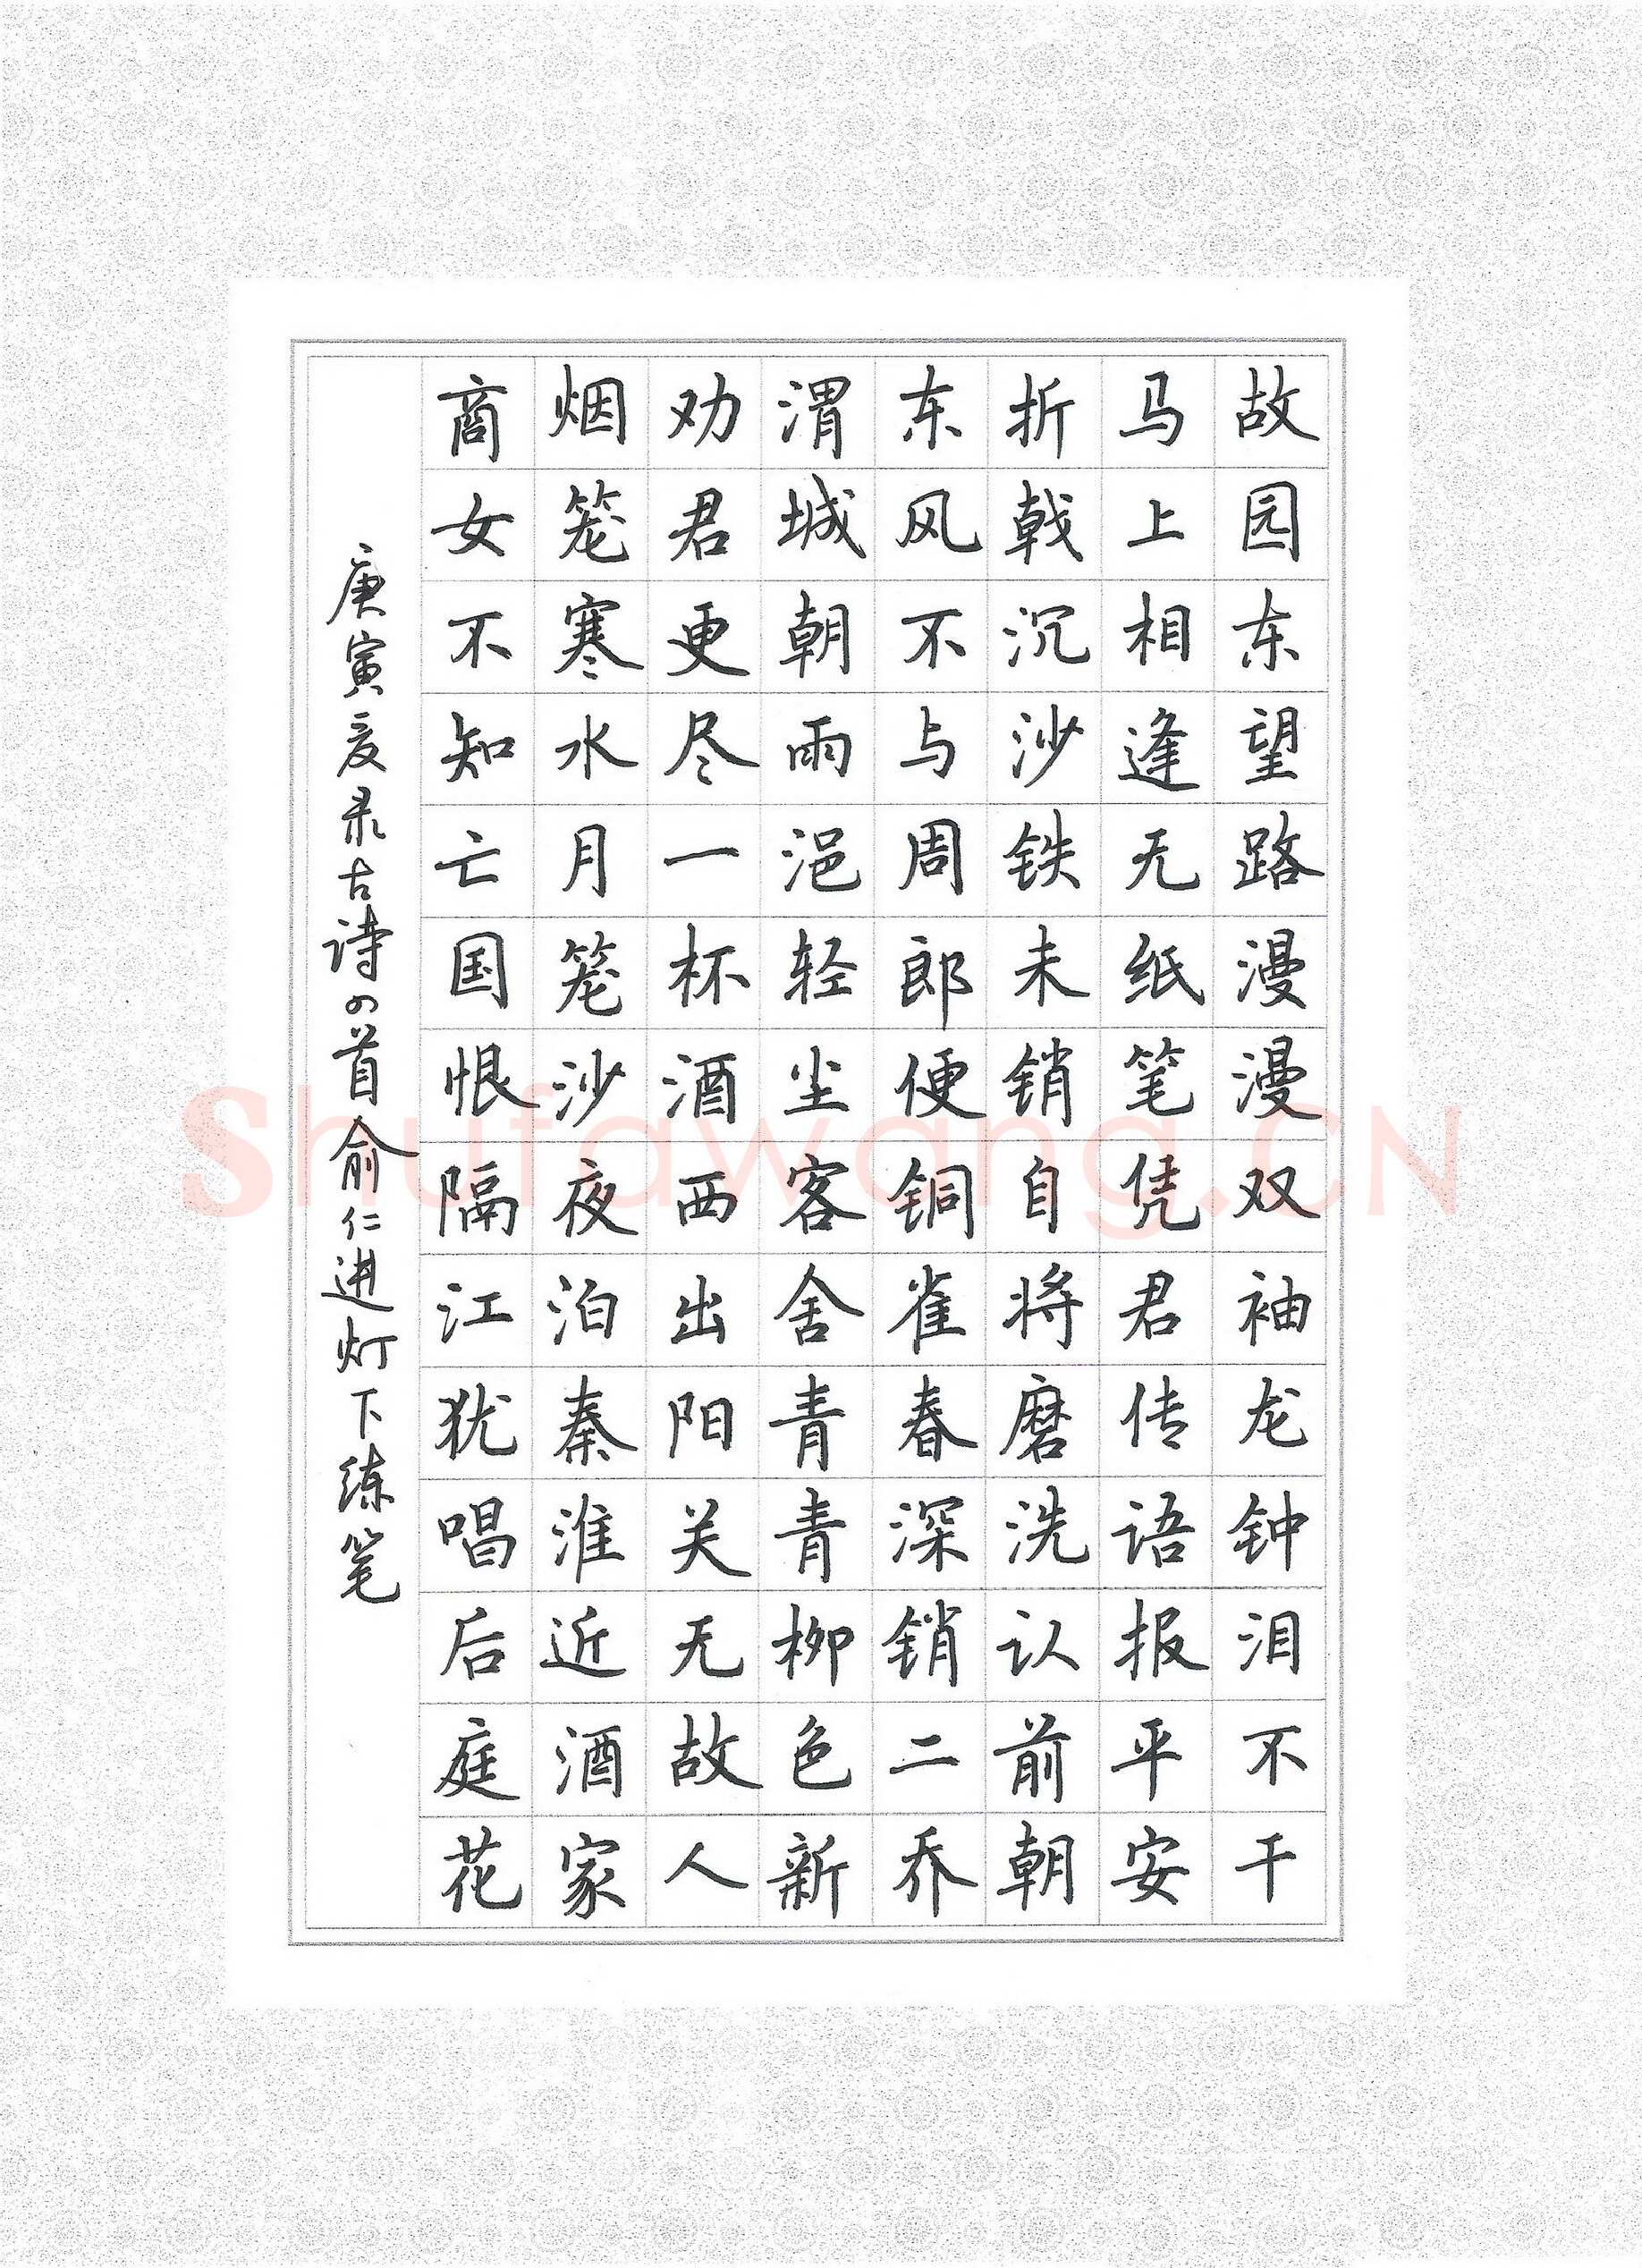 故园东望路漫漫双袖龙钟泪不干
马上相逢无纸笔凭君传语报平安
折戟沉沙铁未销自将磨洗认前朝
东风不与周郎便铜雀春深销二乔
渭城朝雨浥轻尘客舍青青柳色新
劝君更尽一杯酒西出阳关无故人
烟笼寒水月笼沙夜泊秦淮近酒家
商女不知亡国恨隔江犹唱后庭花
庚寅夏录古诗四首俞仁进灯下练笔
Shufawang.CN